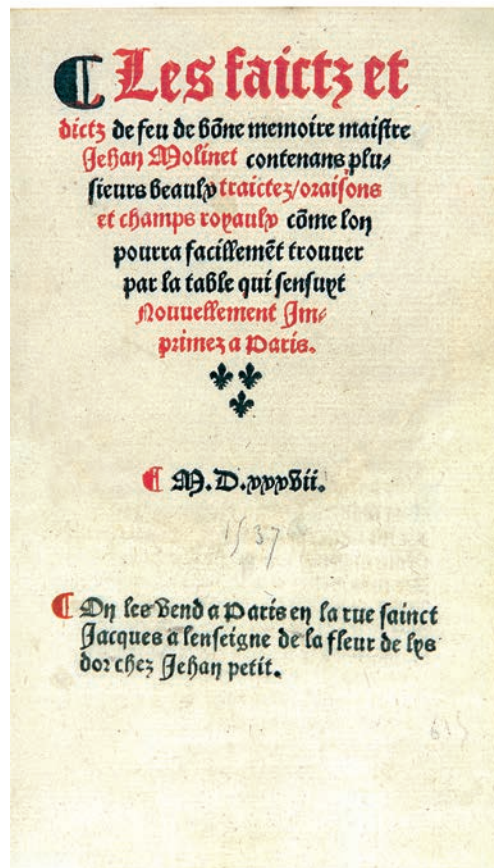 ¶ Les faictz et
dictz de feu de bōne memoire maistre
Jehan Molinet contenans plu⸗
sieurs beaulx traictez/oraisons
et champs royaulx cōme lon
pourra facillemēt trouuer
par la table qui sensuyt
Nouuellement Im⸗
primez a Paris.
¶ M.D.xxxvii.
1537
¶ On les vend a Paris en la rue sainct
Jacques a lenseigne de la fleur de lys
dor chez Jehan petit.